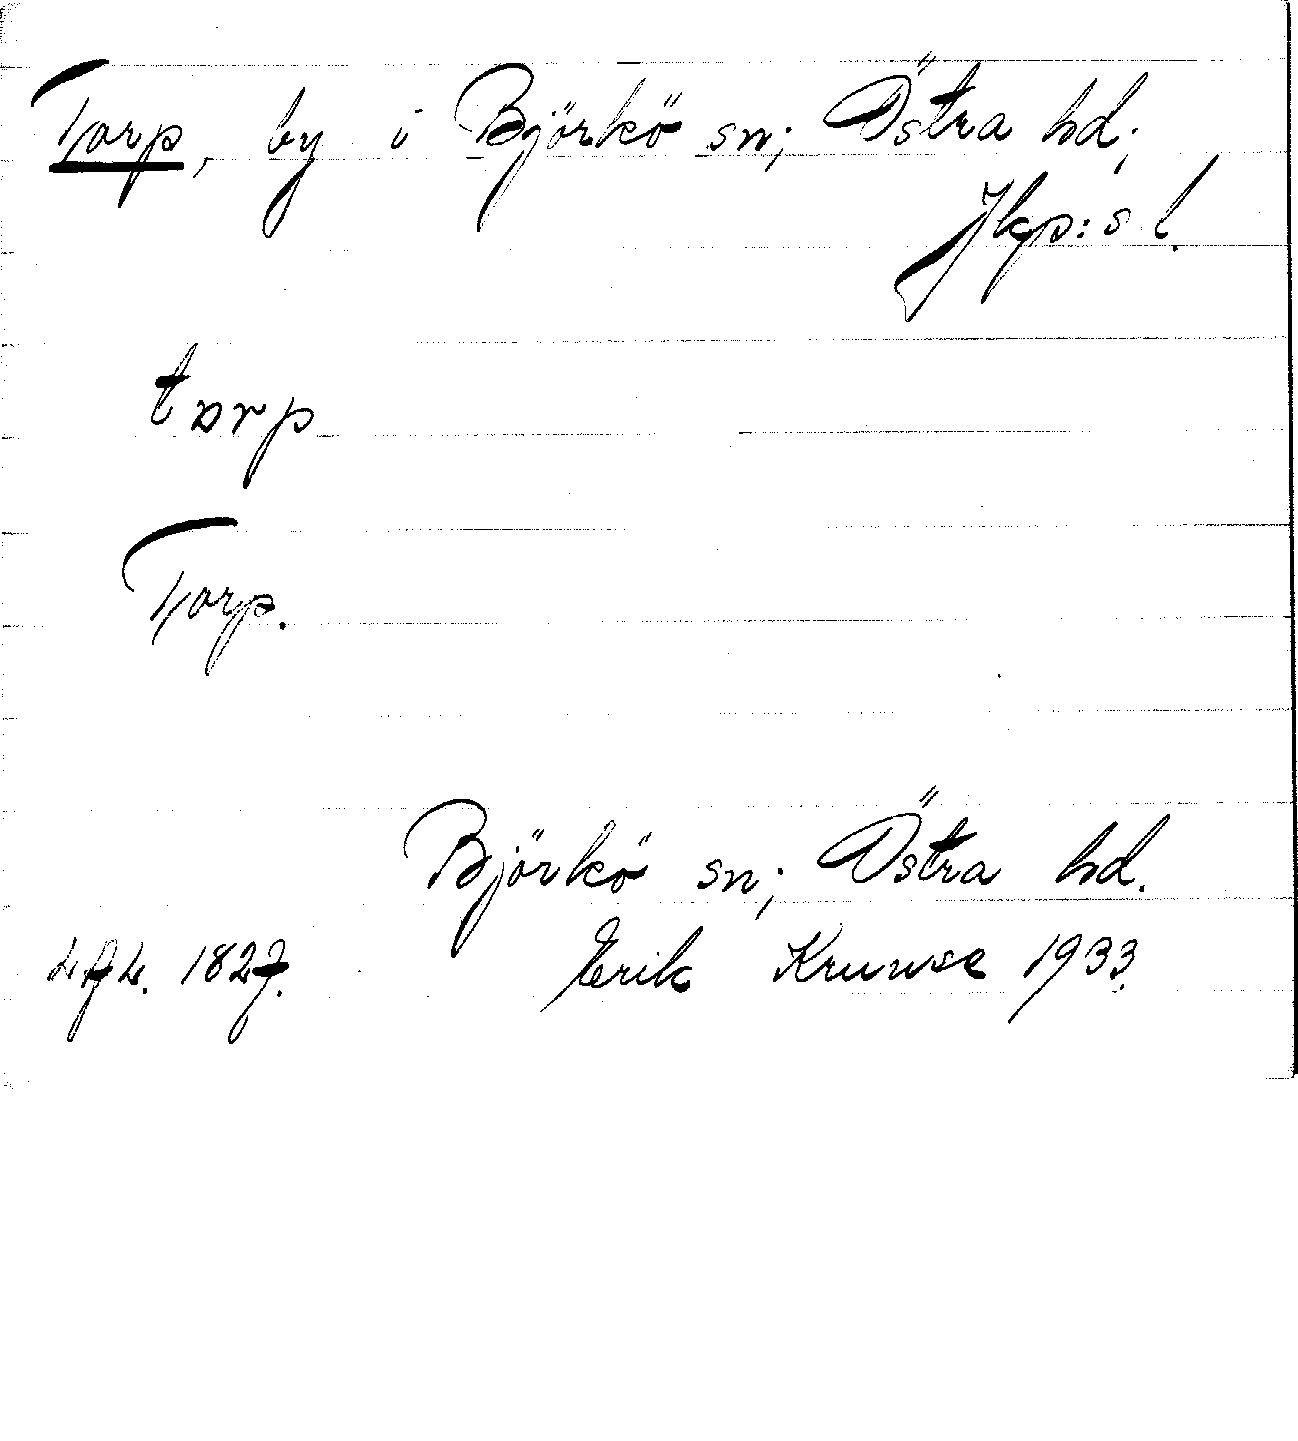 Torp, by i Björkö sn; Östra hd;
Jkp:s l.
tɒrp
Torp.
Björkö sn; Östra hd.
1827. Erik Kruuse 1933.